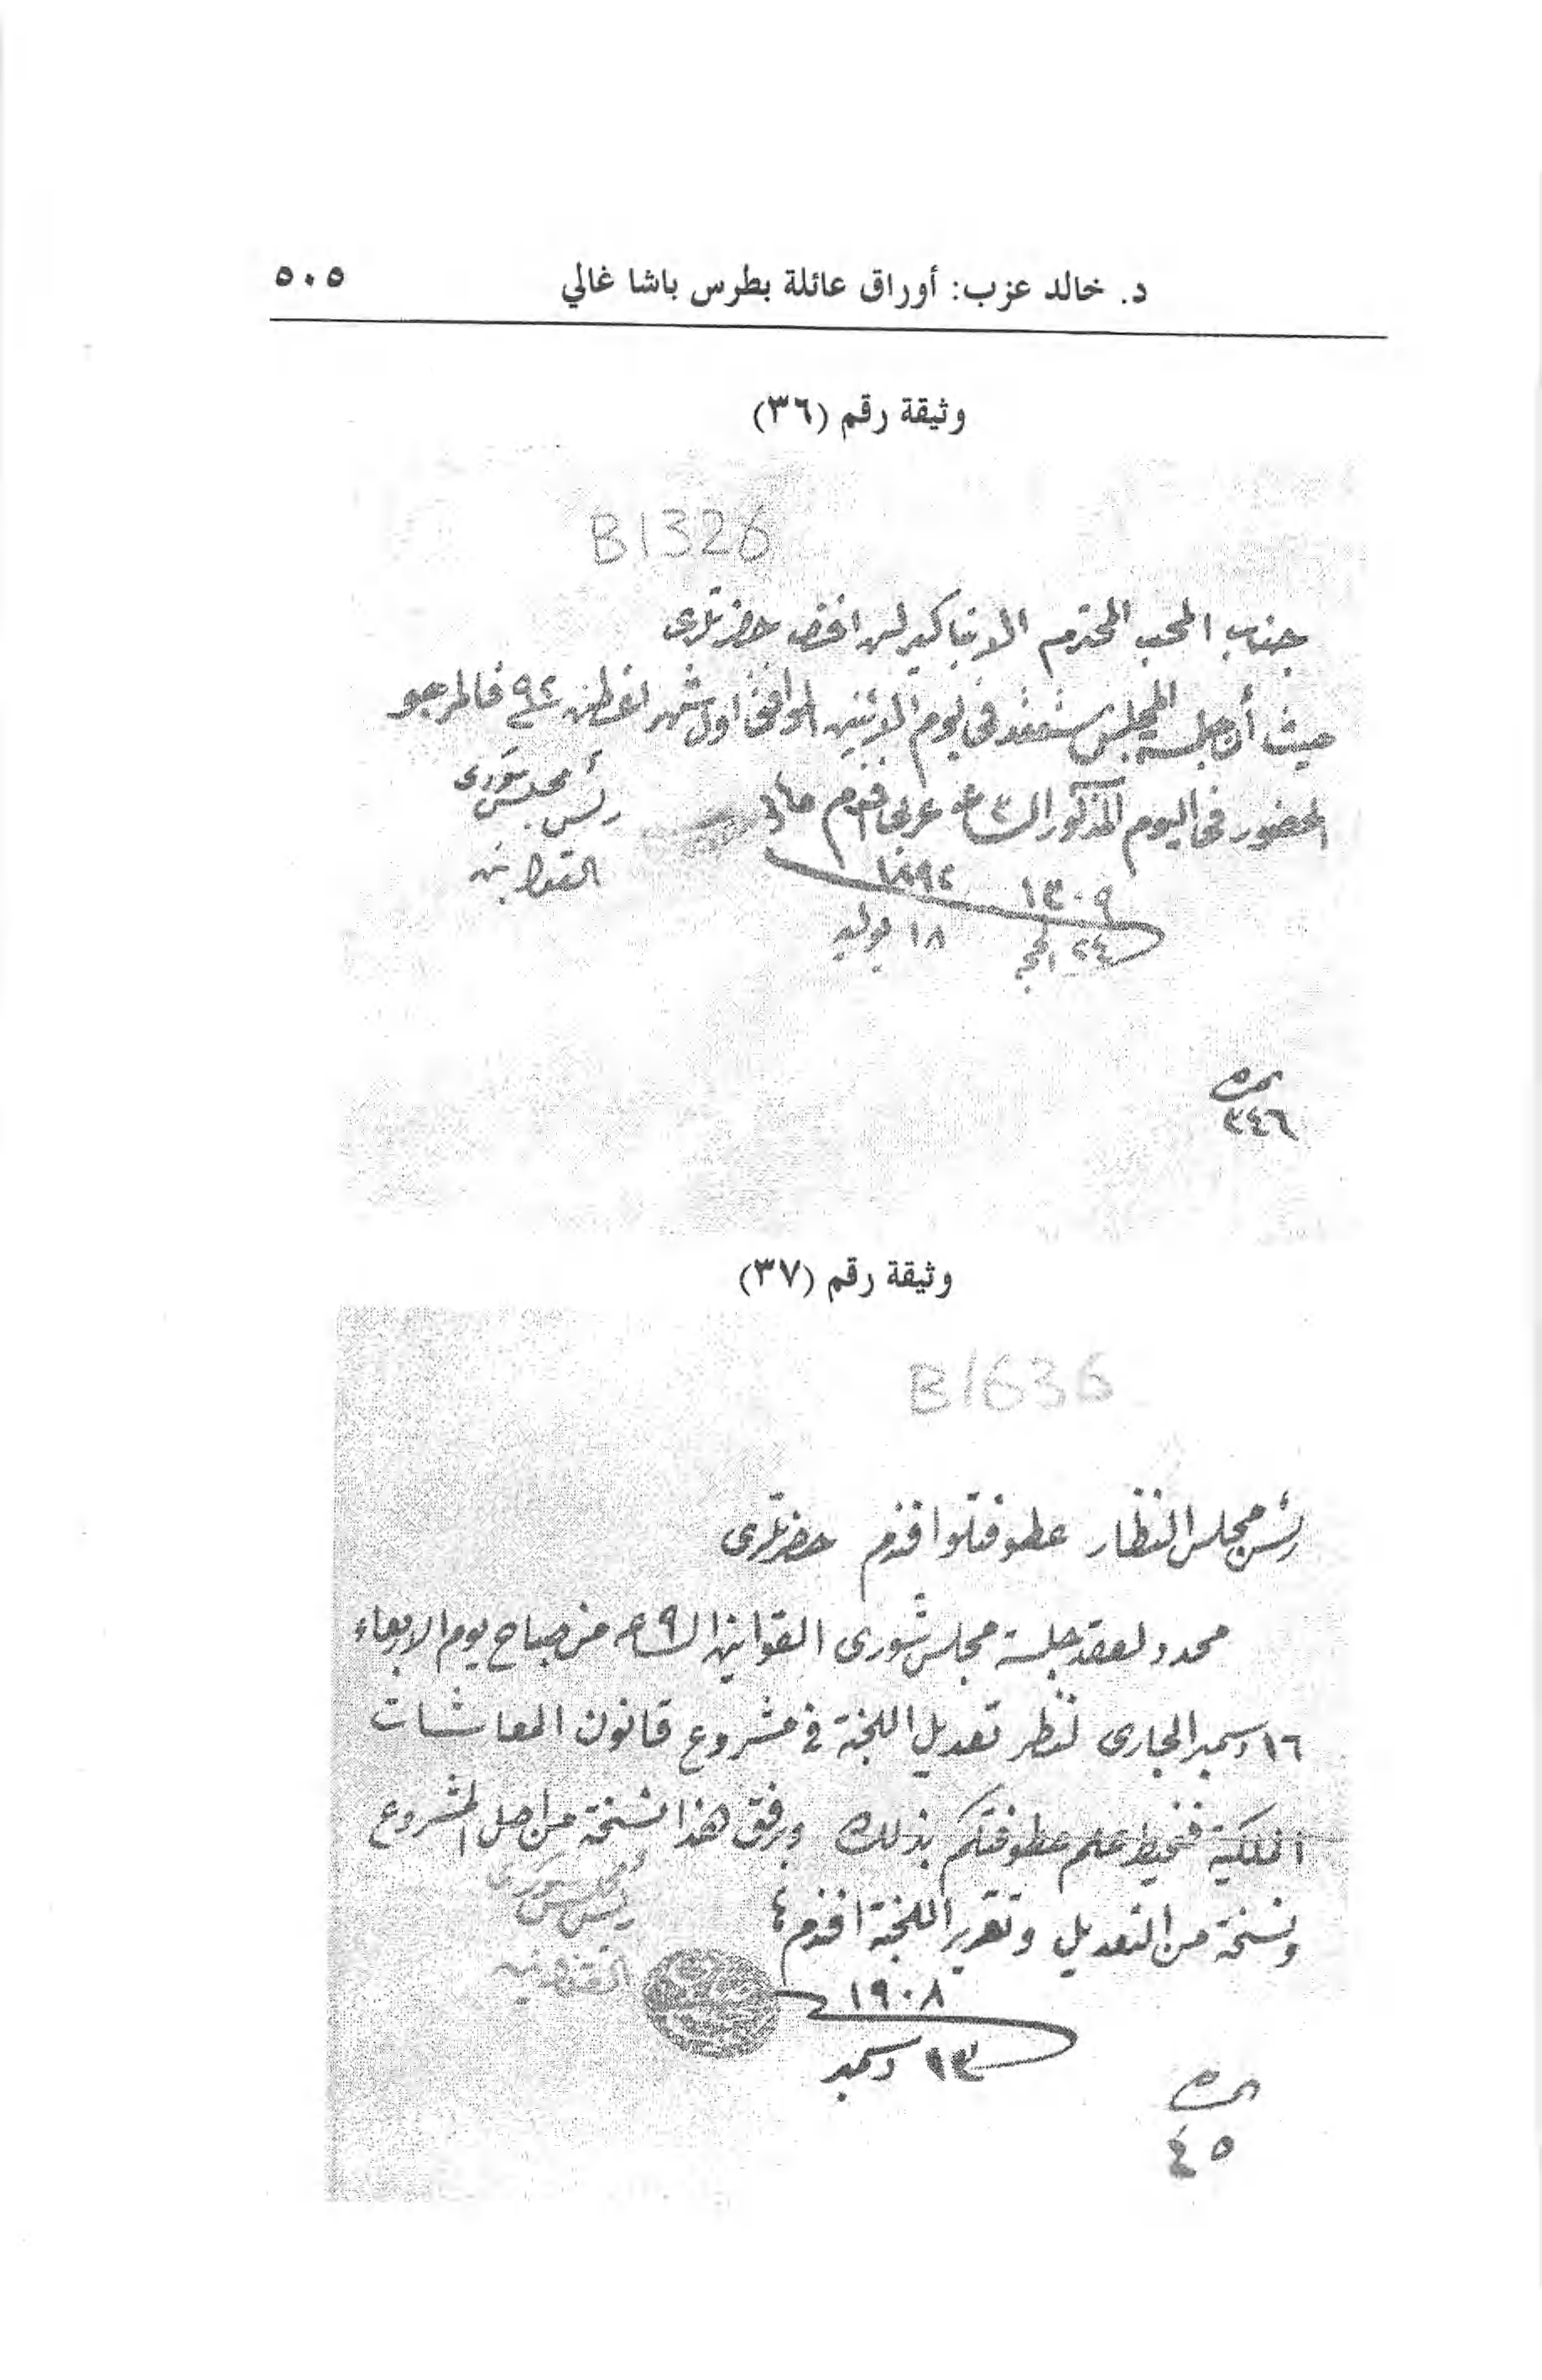 د. خالد عزب: أوراق عائلة بطرس باشا غالي ٥٠٥
وثيقة رقم (٣٦)
B1326
جناب المحب المحترم الانبا كيرلس افندى حضرتلرى
حيث أن جلسة المجلس ستنعقد فى يوم الاثنين الموافق اول شهر اغسطس سنة ٩٢ فالمرجو
الحضور فى اليوم المذكور الساعة ٣ عربى افندم
رئيس مجلس شورى
القوانين
١٣٠٩ ١٨٩٢
٢٤ الحجة ١٨ يوليه
نمرة
٣٤٦
وثيقة رقم (٣٧)
B1636
رئيس مجلس النظار عطوفتلو افندم حضرتلرى
محدد لعقد جلسة مجلس شورى القوانين الساعة ٩ من صباح يوم الاربعاء
١٦ دسمبر الجارى لنظر تعديل اللجنة فى مشروع قانون المعاشات
الملكية فنحيط علم عطوفتكم بذلك ومرفق هذا نسخة من اصل المشروع
ونسخة من التعديل وتقرير اللجنة افندم
رئيس مجلس شورى
القوانين
١٩٠٨
١٣ دسمبر
نمرة
٤٥